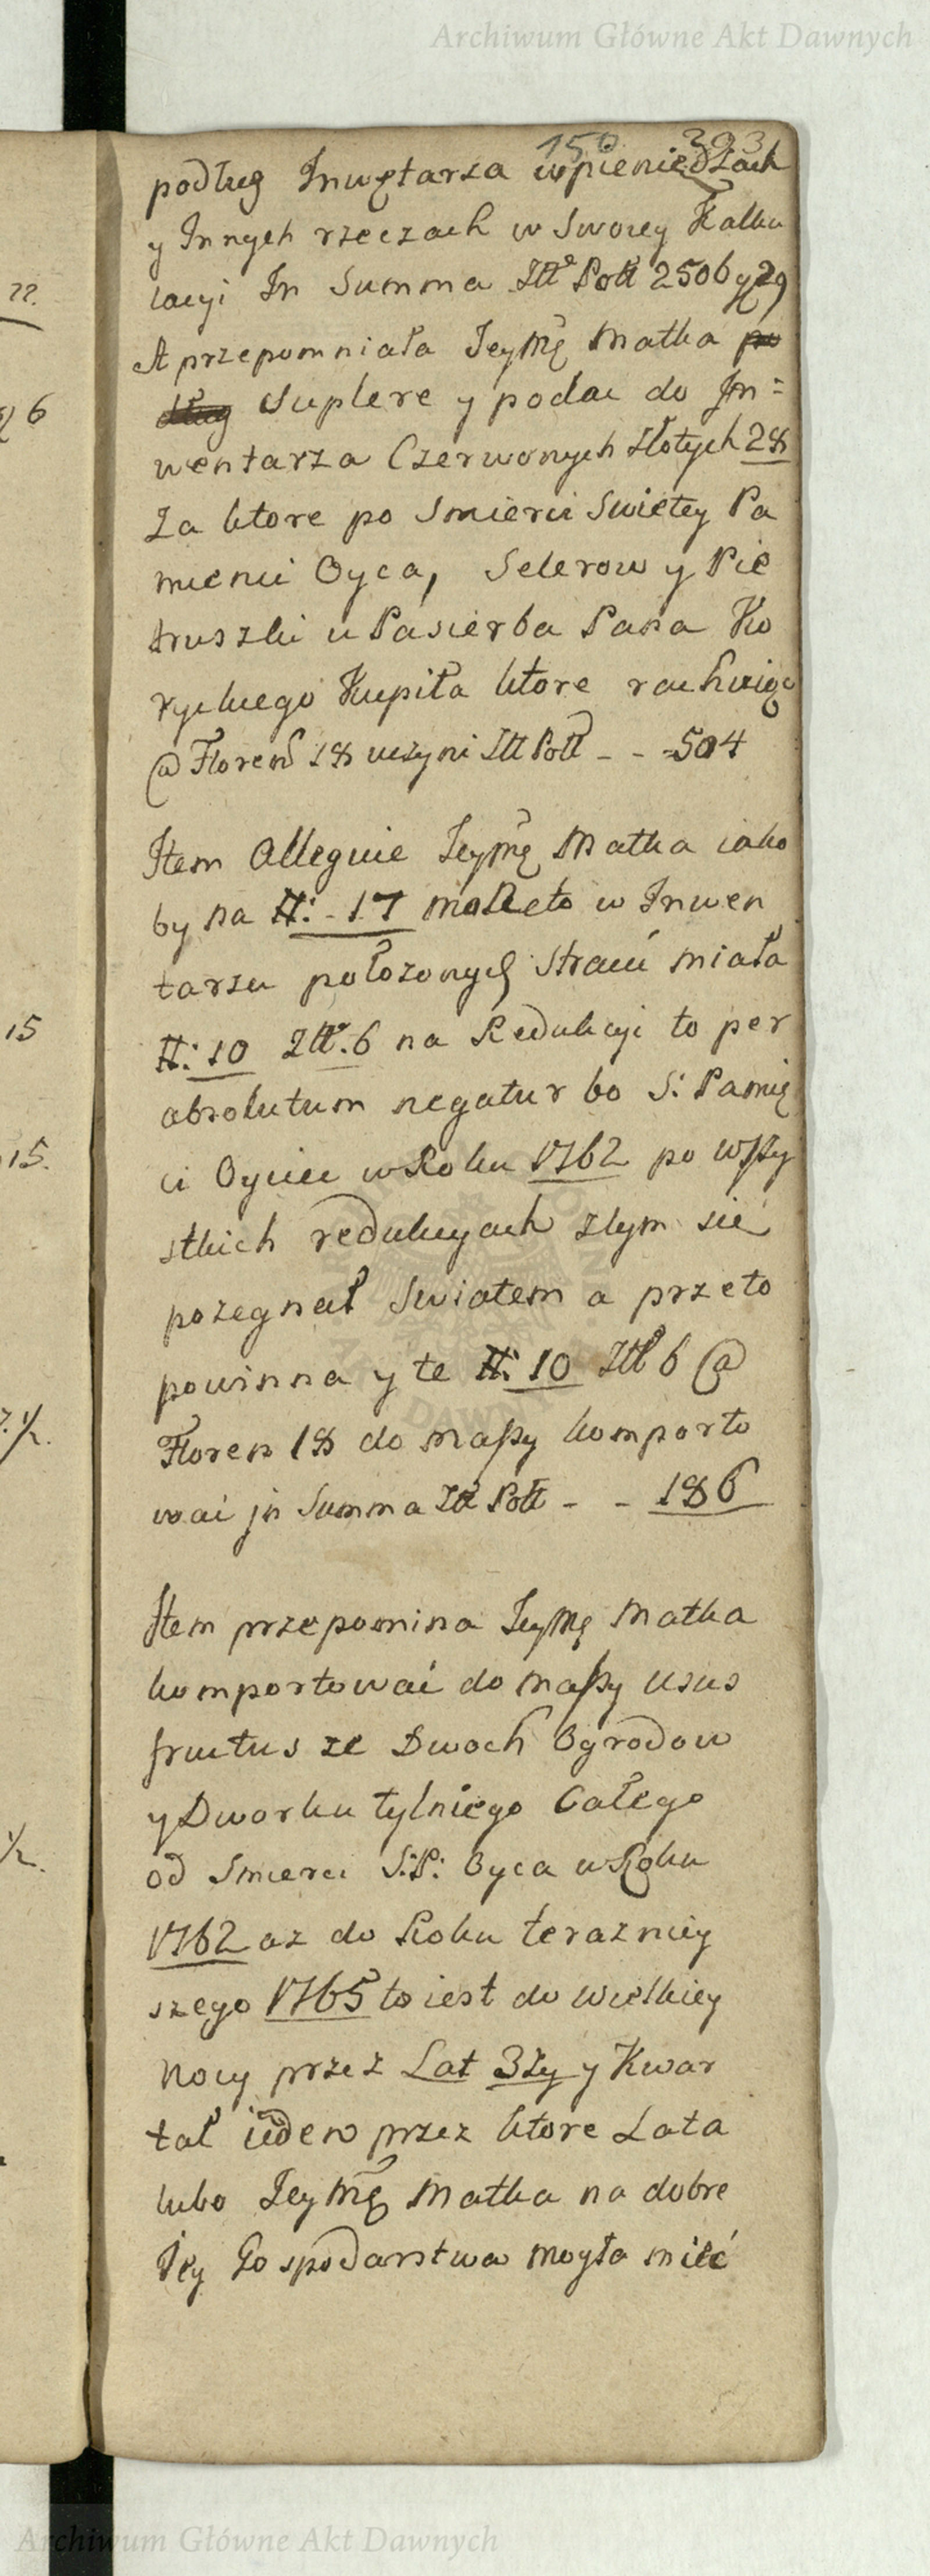 Archiwum Główne Akt Dawnych
150 293
podług Inwętarza w pieniędzach
y Innych rzeczach w Swoiey Kalku
lacyi In Summa Złł Poll 2506 gr 29
A przepomniała Jeymę Matka po
dług Suplere y podac do In=
wentarza Czerwonych Złotych 28
Za ktore po Smierci Swietey Pa
mienci Oyca, Selerow y Pie
truszki u Pasierba Pana Ko
ryckiego Kupiła ktore rachuiąc
@ Floren 18 uczyni Złł Poll - - 504
Item Alleguie Jeymę Matka iako
by na #: - 17 w Inwen
tarzu położonych stracić miała
#: 10 Złł. 6 na Redukcyi to per
absolutum negatur bo S: Pamię
ci Oyciec w Roku 1762 po wszy
stkich redukcyach z tym sie
pozegnał Swiatem a przeto
powinna y te #: 10 Złł 6 @
Floren 18 do massy komporto
wać in Summa Złł Poll - - 186
Item przepomina Jeymę Matka
komportować do massy Usus
fructus ze Dwoch Ogrodow
y Dworku tylniego Całego
od Smierci S:P: Oyca w Roku
1762 az do Roku terazniey
szego 1765 to iest do Wielkiey
Nocy przez Lat 3zy y Kwar
tał ieden przez ktore Lata
lubo Jeymę Matka na dobre
Jey Gospodarstwa mogła mieć
22.
6
15
15.
1/2.
1/2.
Archiwum Główne Akt Dawnych